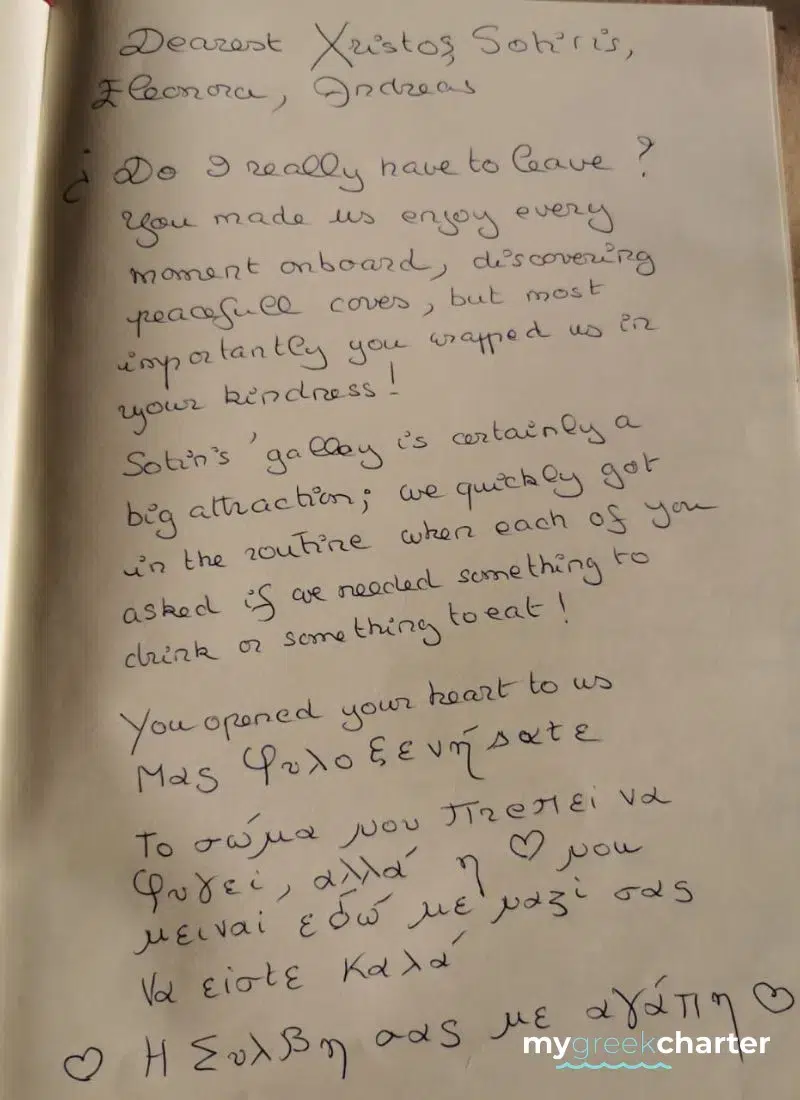 Dearest Xristos, Sotiris,
Eleonora, Andreas
¿ Do I really have to leave ?
You made us enjoy every
moment onboard, discovering
peacefull coves, but most
importantly you wrapped us in
your kindness !
Sotiri's' galley is certainly a
big attraction; we quickly got
in the routine when each of you
asked if we needed something to
drink or something to eat !
You opened your heart to us
Μας φυλοξενήσατε
Το σώμα μου πρεπει να
φυγει, αλλά η ♡ μου
μειναι εδώ με μαζί σας
Να είστε καλά
♡ Η Συλβη σας με αγάπη ♡
mygreekcharter